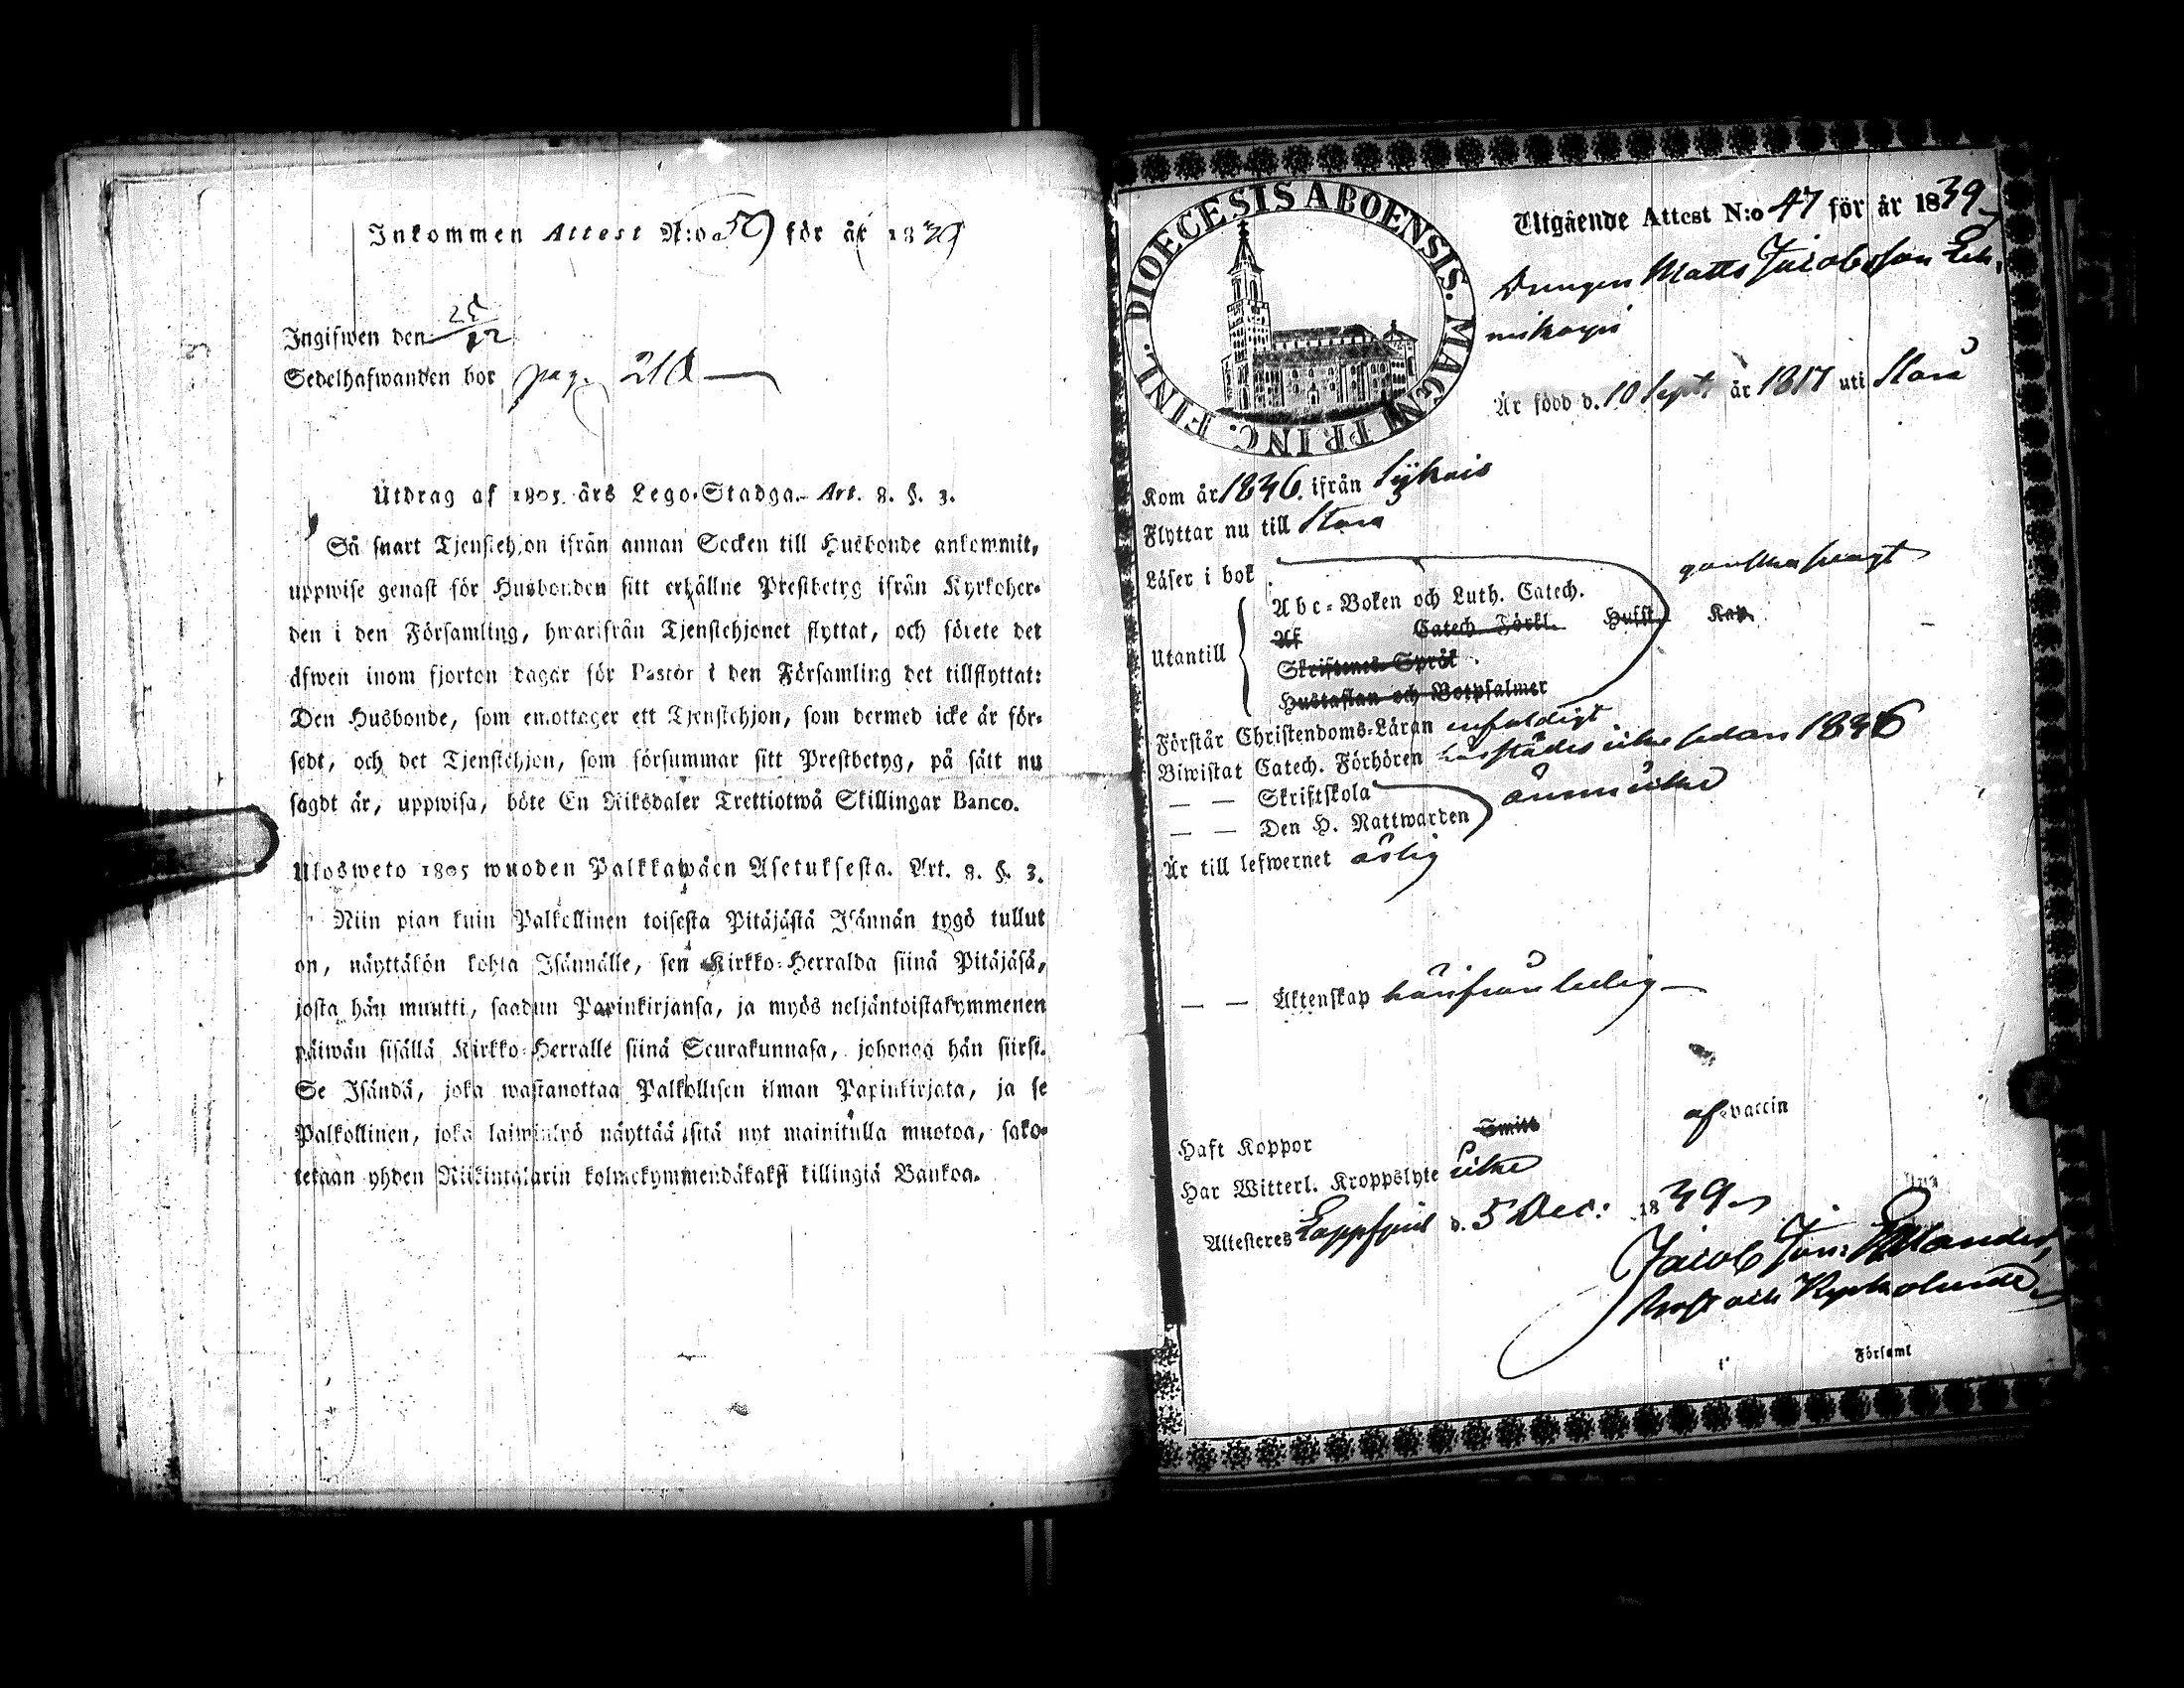 Inkommen Attest N:o 59 för år 1839
Ingifwen den 25/12
Sedelhafwanden bor pag. 210
Utdrag af 1805. års Lego-Stadga. Art. 8. §. 3.
Så snart Tjenstehjon ifrån annan Socken till Husbonde ankommit,
uppwise genast för Husbonden sitt erhållne Prestbetyg ifrån Kyrkoher-
den i den Församling, hwarifrån Tjenstehjonet flyttat, och förete det
äfwen inom fjorton dagar för Pastor i den Församling det tillflyttat:
Den Husbonde, som emottager ett Tjenstehjon, som dermed icke är för-
sedt, och det Tjenstehjon, som försummar sitt Prestbetyg, på sätt nu
sagdt är, uppwisa, böte En Riksdaler Trettiotwå Skillingar Banco.
Ulosweto 1805 wuoden Palkkawäen Asetuksesta. Art. 8. §. 3.
Niin pian kuin Palkollinen toisesta Pitäjästä Isännän tygö tullut
on, näyttäkön kohta Isännälle, sen Kirkko-Herralda siinä Pitäjäsä,
josta hän muutti, saadun Papinkirjansa, ja myös neljäntoistakymmenen
päiwän sisällä Kirkko-Herralle siinä Seurakunnasa, johonga hän siirsi.
Se Isändä, joka wastanottaa Palkollisen ilman Papinkirjata, ja se
Palkollinen, joka laiminlyö näyttää sitä nyt mainitulla muotoa, sako-
tetaan yhden Riikintalarin kolmekymmendäkaksi killingiä Bankoa.
DIOECESIS ABOENSIS. MAG. PRINC. FINL.
Utgående Attest N:o 47 för år 1839
Drengen Matts Jacobsson
Är född d. 10 Sept. år 1817 uti Storå
Kom år 1836. ifrån
Flyttar nu till Storå
Läser i bok ganska swagt
Utantill
Abc-Boken och Luth. Catech.
Af Catech. Förkl. Husst. Kap.
Skriftenes Språk
Hustaflan och Botpsalmer
Förstår Christendoms-Läran enfaldigt
Biwistat Catech. Förhören härstädes icke sedan 1836
— — Skriftskola
— — Den H. Nattwarden ännu icke
Är till lefwernet
— — Äktenskap härifrån ledig
Haft Koppor Smitt af vaccin
Har Witterl. Kroppslyte icke
Attesteres Lappfjerd d. 5 Dec: 1839
Jacob Jon:
Prost och Kyrkoherde
i Församl